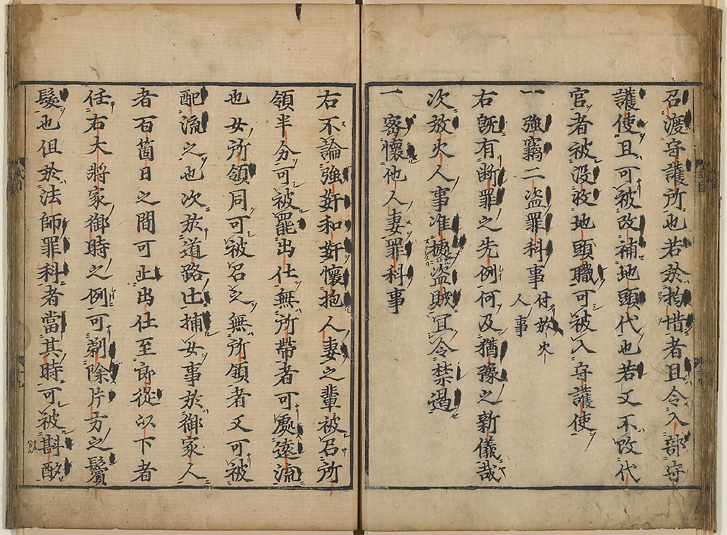 召渡守護所也若於拘惜者且令入部守
護使且可被改補地頭代也若又不改代
官者被没收地頭職可被入守護使
一 強竊二盗罪科事 付放火
人事
右既有断罪之先例何及猶豫之新儀哉
次放火人事准據盗賊宜令禁遏
一 密懷他人妻罪科事
右不論強奸和奸懷抱人妻之輩被召所
領半分可被罷出仕無所帶者可處遠流
也女所領同可被召之無所領者又可被
配流之也次於道路辻捕女事於御家人
者百箇日之間可止出仕至郎從以下者
任右大將家御時之例可剃除片方之鬢
髮也但於法師罪科者當其時可被斟酌